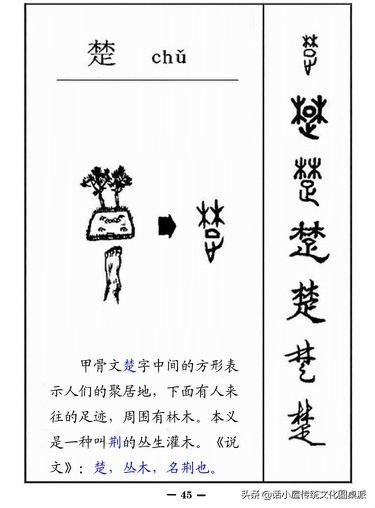 楚 chǔ
甲骨文楚字中间的方形表
示人们的聚居地，下面有人来
往的足迹，周围有林木。本义
是一种叫荆的丛生灌木。《说
文》：楚，丛木，名荆也。
— 45 —
头条 @诺小屋传统文化圆桌派